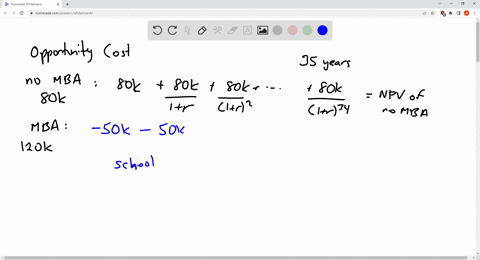 Numerade Whiteboard
numerade.com/answers/whiteboard
Opportunity Cost
35 years
no MBA : 80k + 80k/1+r + 80k/(1+r)^2 + ... + 80k/(1+r)^34 = NPV of no MBA
80k
MBA : -50k - 50k
120k
school